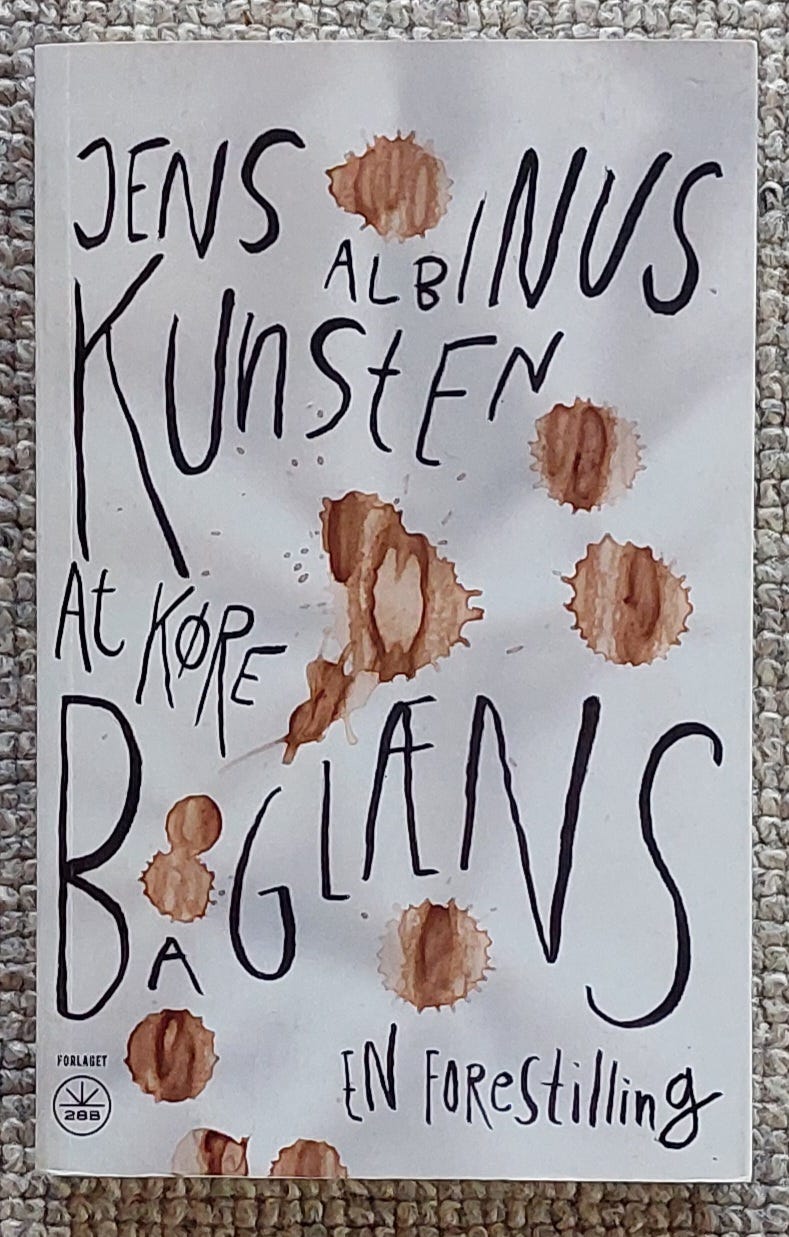 JENS
ALBINUS
KUnStEN
At KØRE
BAGLÆNS
EN FOREStilling
FORLAGET
28B